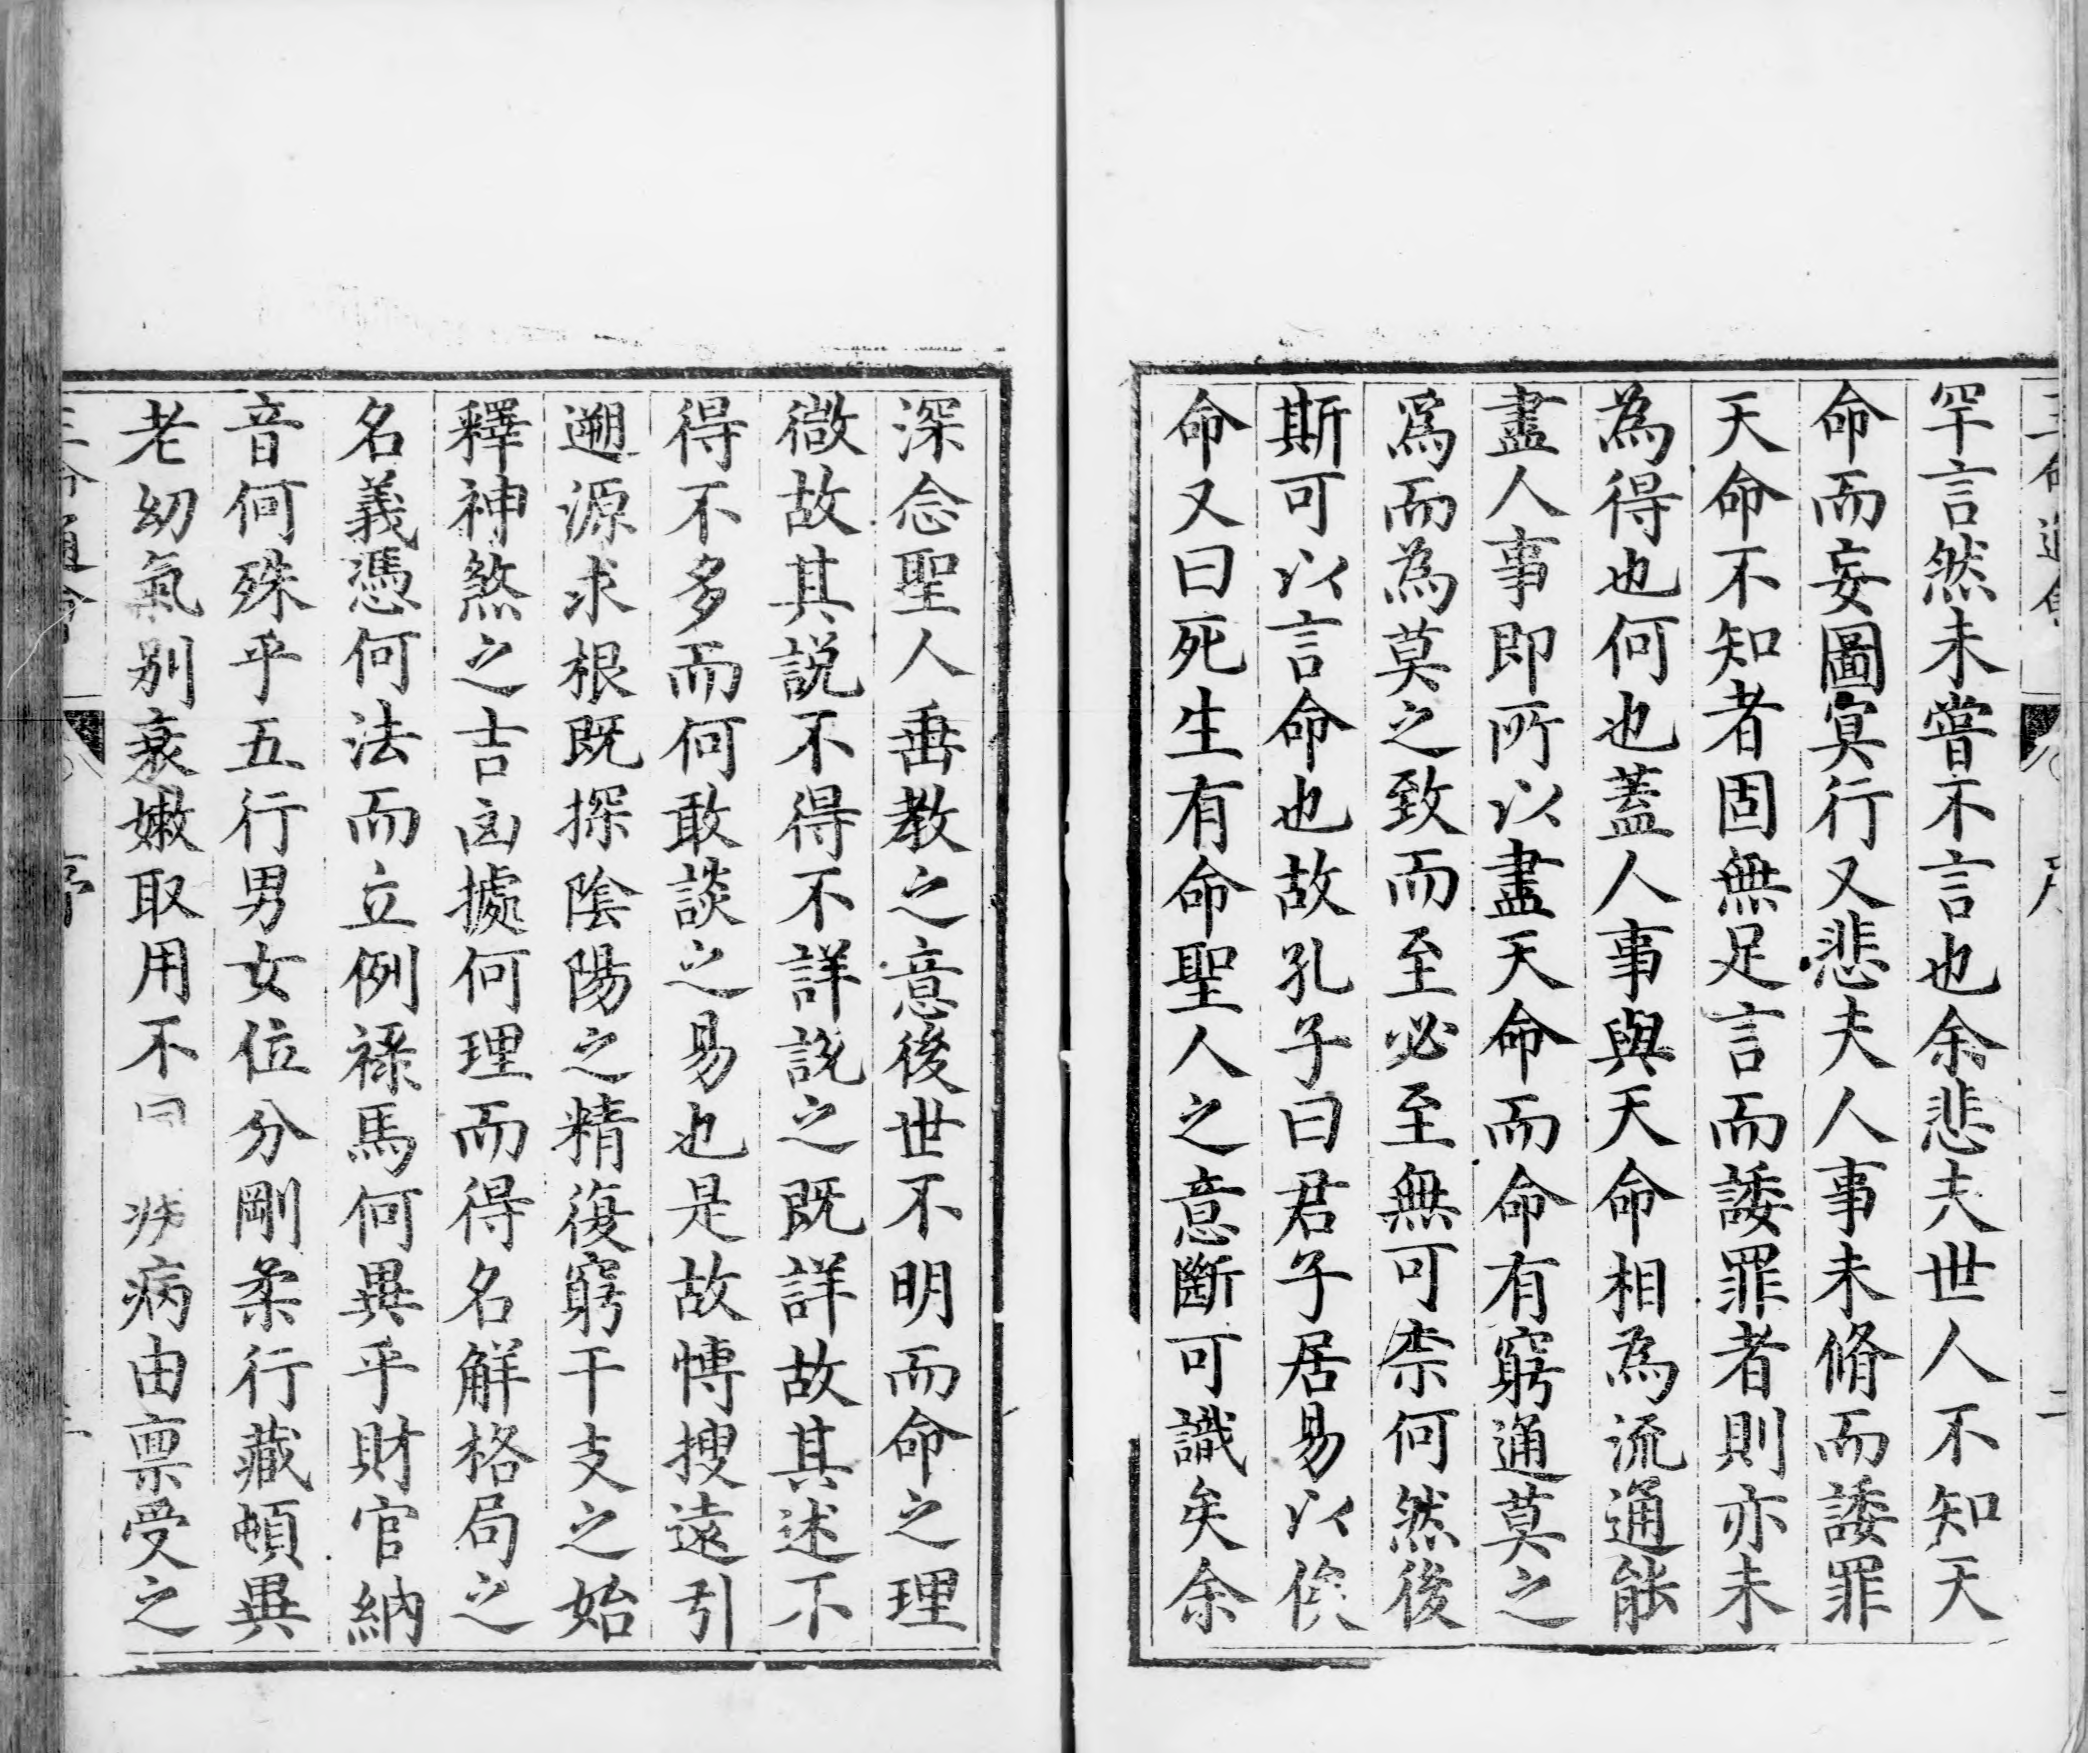 罕言然未嘗不言也余悲夫世人不知天
命而妄圖冥行又悲夫人事未脩而諉罪
天命不知者固無足言而諉罪者則亦未
為得也何也蓋人事與天命相為流通能
盡人事即所以盡天命而命有窮通莫之
爲而為莫之致而至必至無可柰何然後
斯可以言命也故孔子曰君子居易以俟
命又曰死生有命聖人之意斷可識矣余
深念聖人垂教之意後世不明而命之理
微故其説不得不詳説之既詳故其述不
得不多而何敢談之易也是故博搜遠引
遡源求根既探陰陽之精復窮干支之始
釋神煞之吉凶據何理而得名解格局之
名義憑何法而立例祿馬何異乎財官納
音何殊乎五行男女位分剛柔行藏頓異
老幼氣別衰嫩取用不 病由禀受之
三命通會 序 二